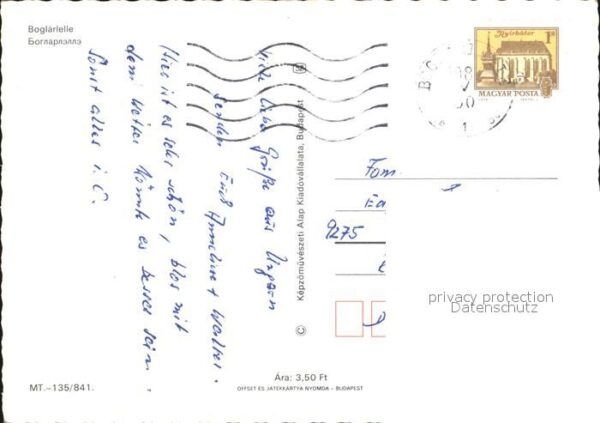 Boglárlelle
Богларлэллэ
Viele liebe Grüße aus Ungarn
senden Euch Anneliese + Walter.
Hier ist es sehr schön, blos mit
dem Wetter könnte es besser sein.
Sonst alles i. O.
© Képzőművészeti Alap Kiadóvállalata, Budapest
Nyírbátor
1 Ft
MAGYAR POSTA
Fam.
9275
privacy protection
Datenschutz
Ára: 3,50 Ft
OFFSET ÉS JÁTÉKKÁRTYA NYOMDA – BUDAPEST
MT.–135/841.